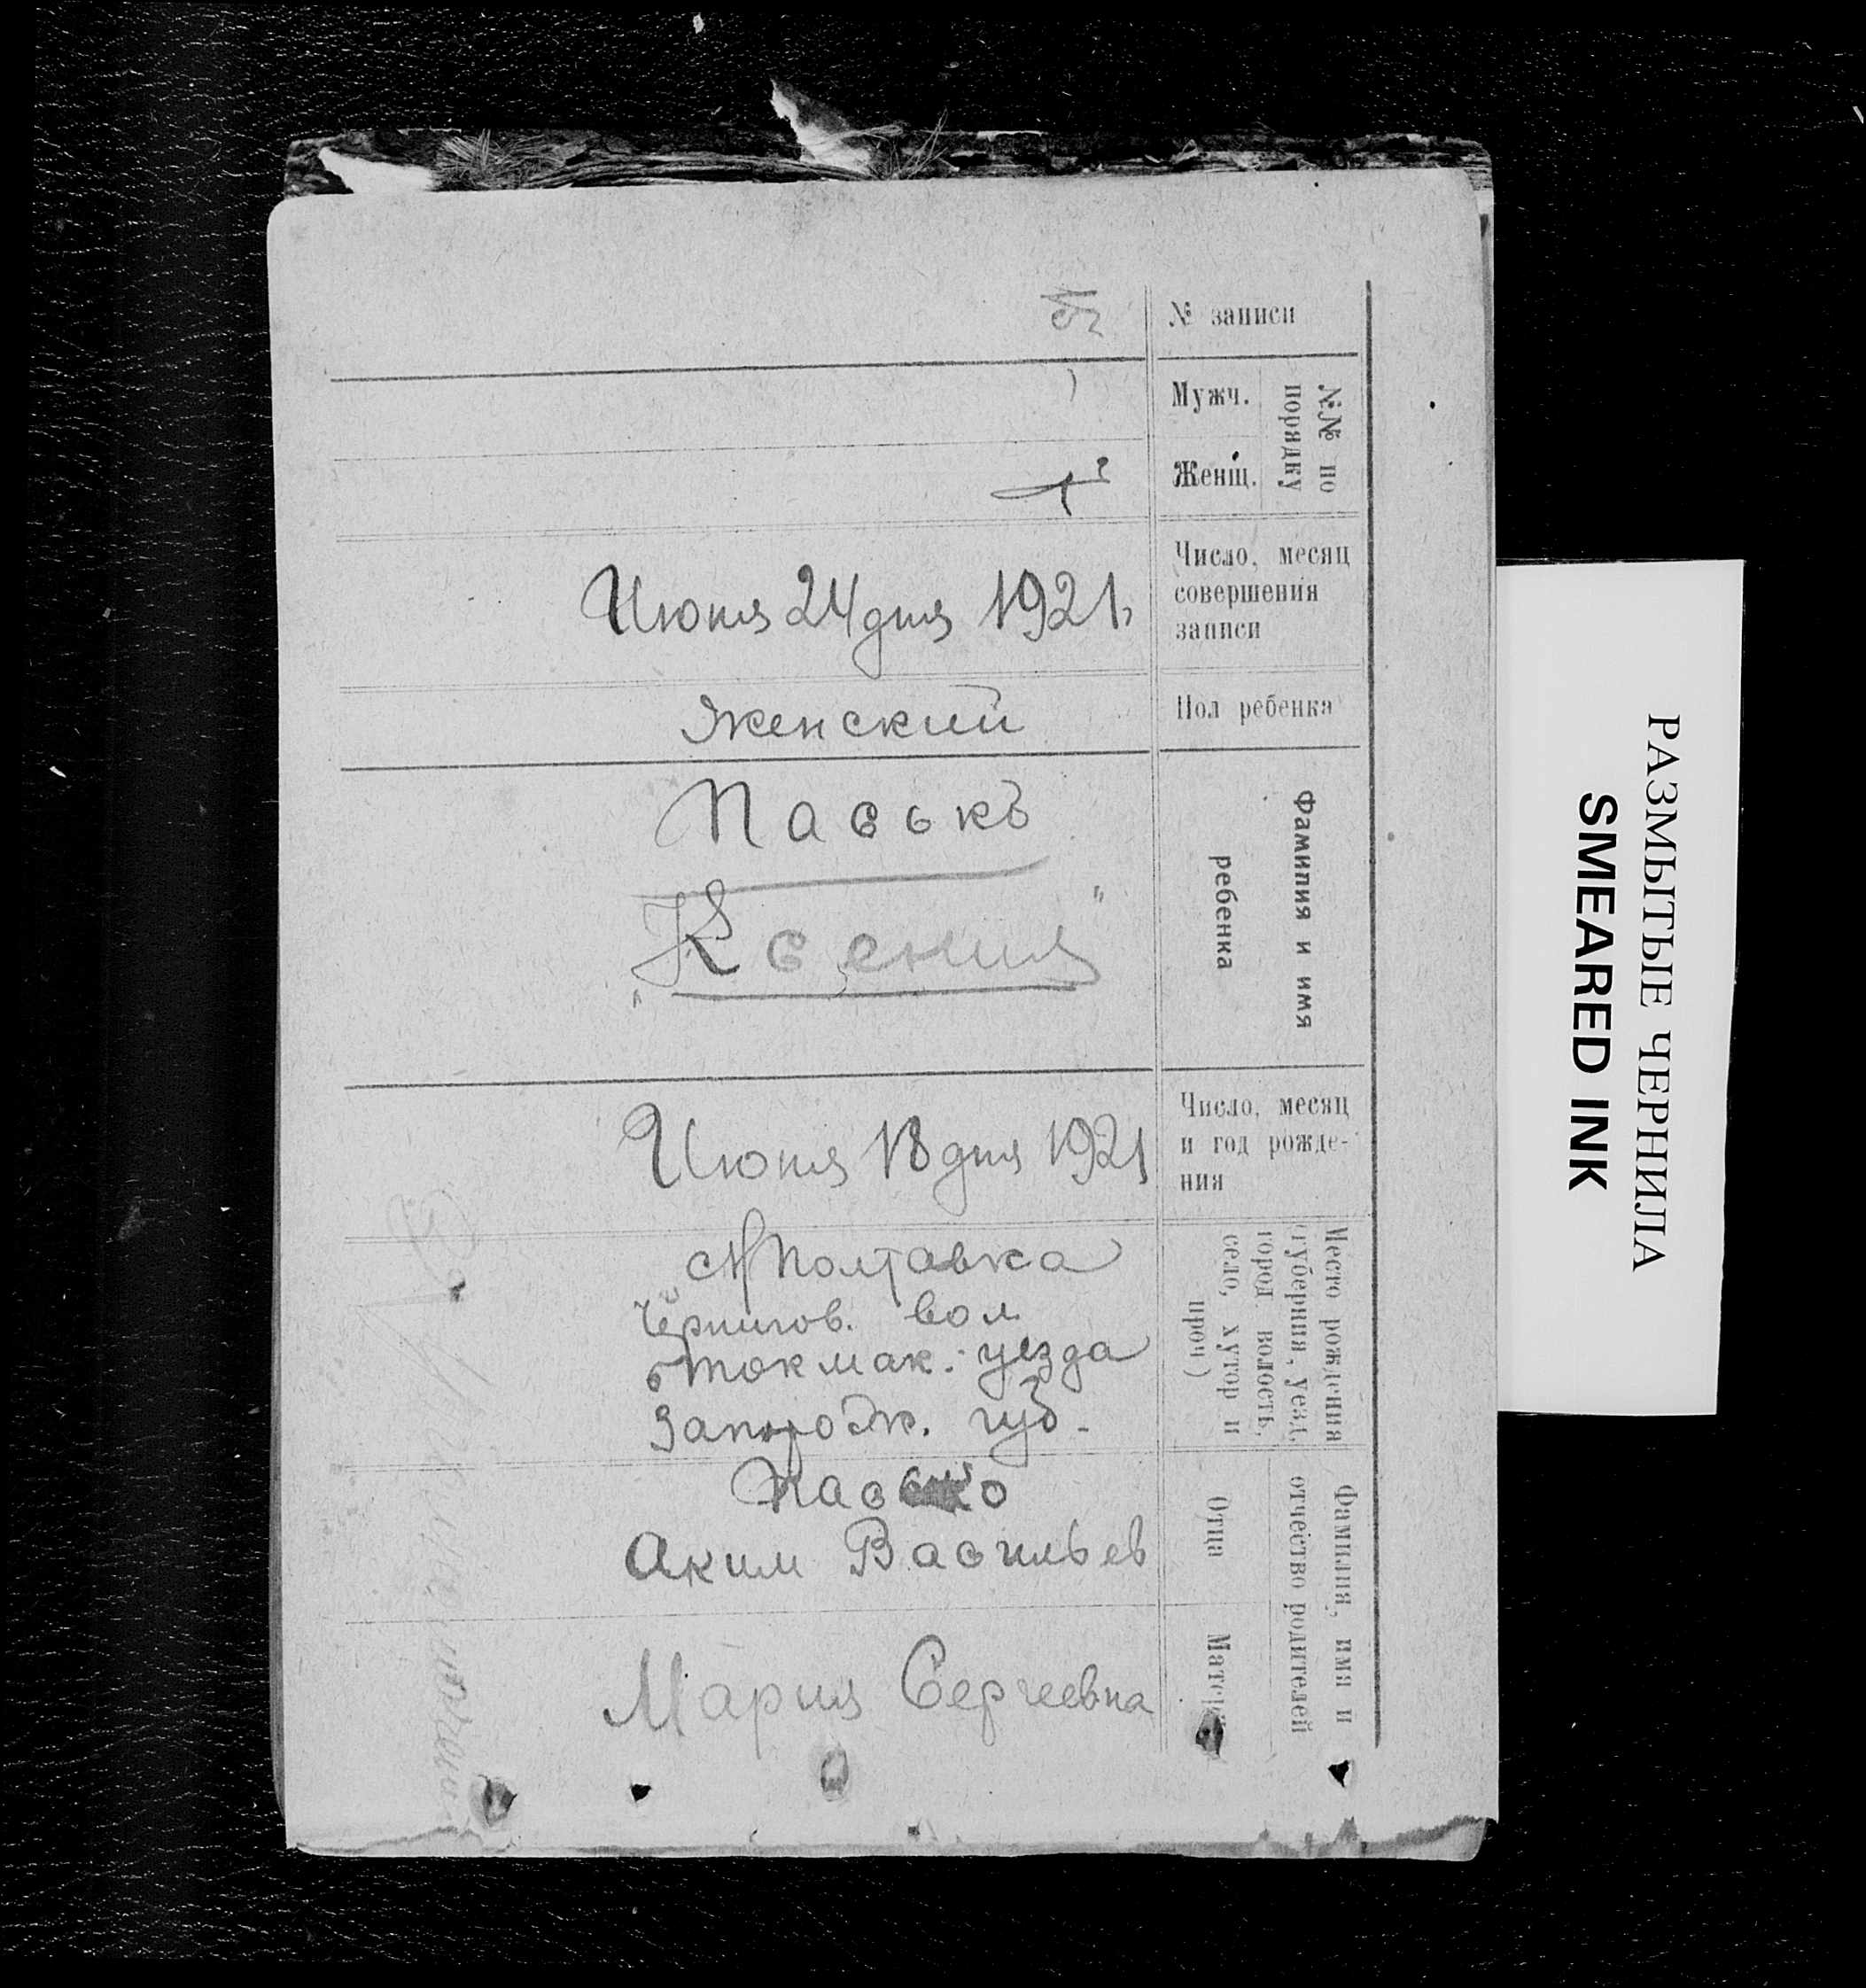 № записи
№№ по порядку
Мужч.
Женщ.
Число, месяц
совершения
записи
Июня 24 дня 1921
Пол ребенка
Женский
Фамилия и имя
ребенка
Паськъ
"Ксения"
Число, месяц
и год рожде-
ния
Июня 18 дня 1921
Место рождения
(губерния, уезд,
город, волость,
село, хутор и
проч)
Полтавка
Чернигов. вол
Б Токмак. уезда
Запорож. губ.
Фамилия, имя и
отчество родителей
Отца
Пасько
Аким Васильев
Матери
Мария Сергеевна
РАЗМЫТЫЕ ЧЕРНИЛА
SMEARED INK